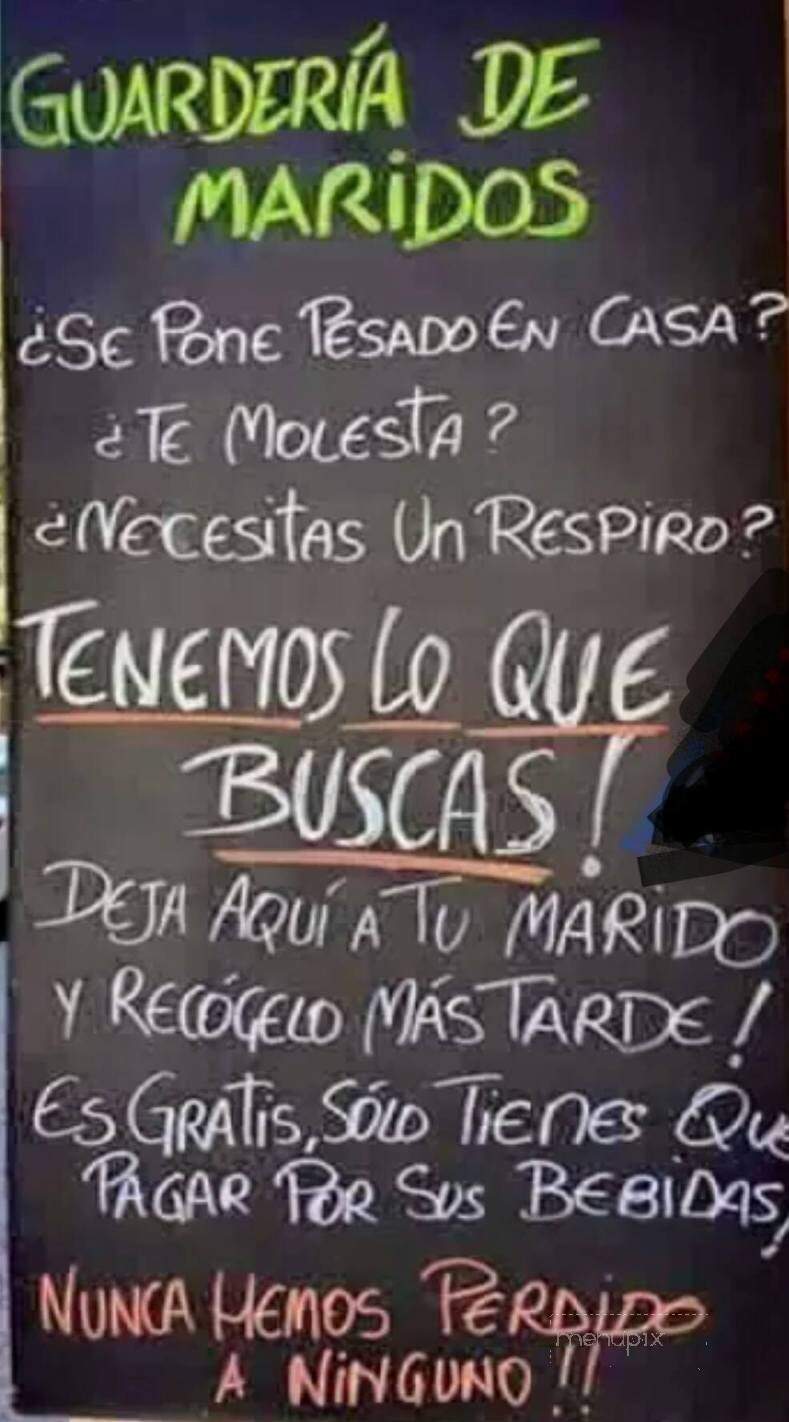 GUARDERÍA DE
MARIDOS
¿SE PONE PESADO EN CASA?
¿TE MOLESTA?
¿NECESITAS UN RESPIRO?
TENEMOS LO QUE
BUSCAS!
DEJA AQUÍ A TU MARIDO
Y RECÓGELO MÁS TARDE!
ES GRATIS, SÓLO TIENES QUE
PAGAR POR SUS BEBIDAS!
NUNCA HEMOS PERDIDO
menupix
A NINGUNO!!